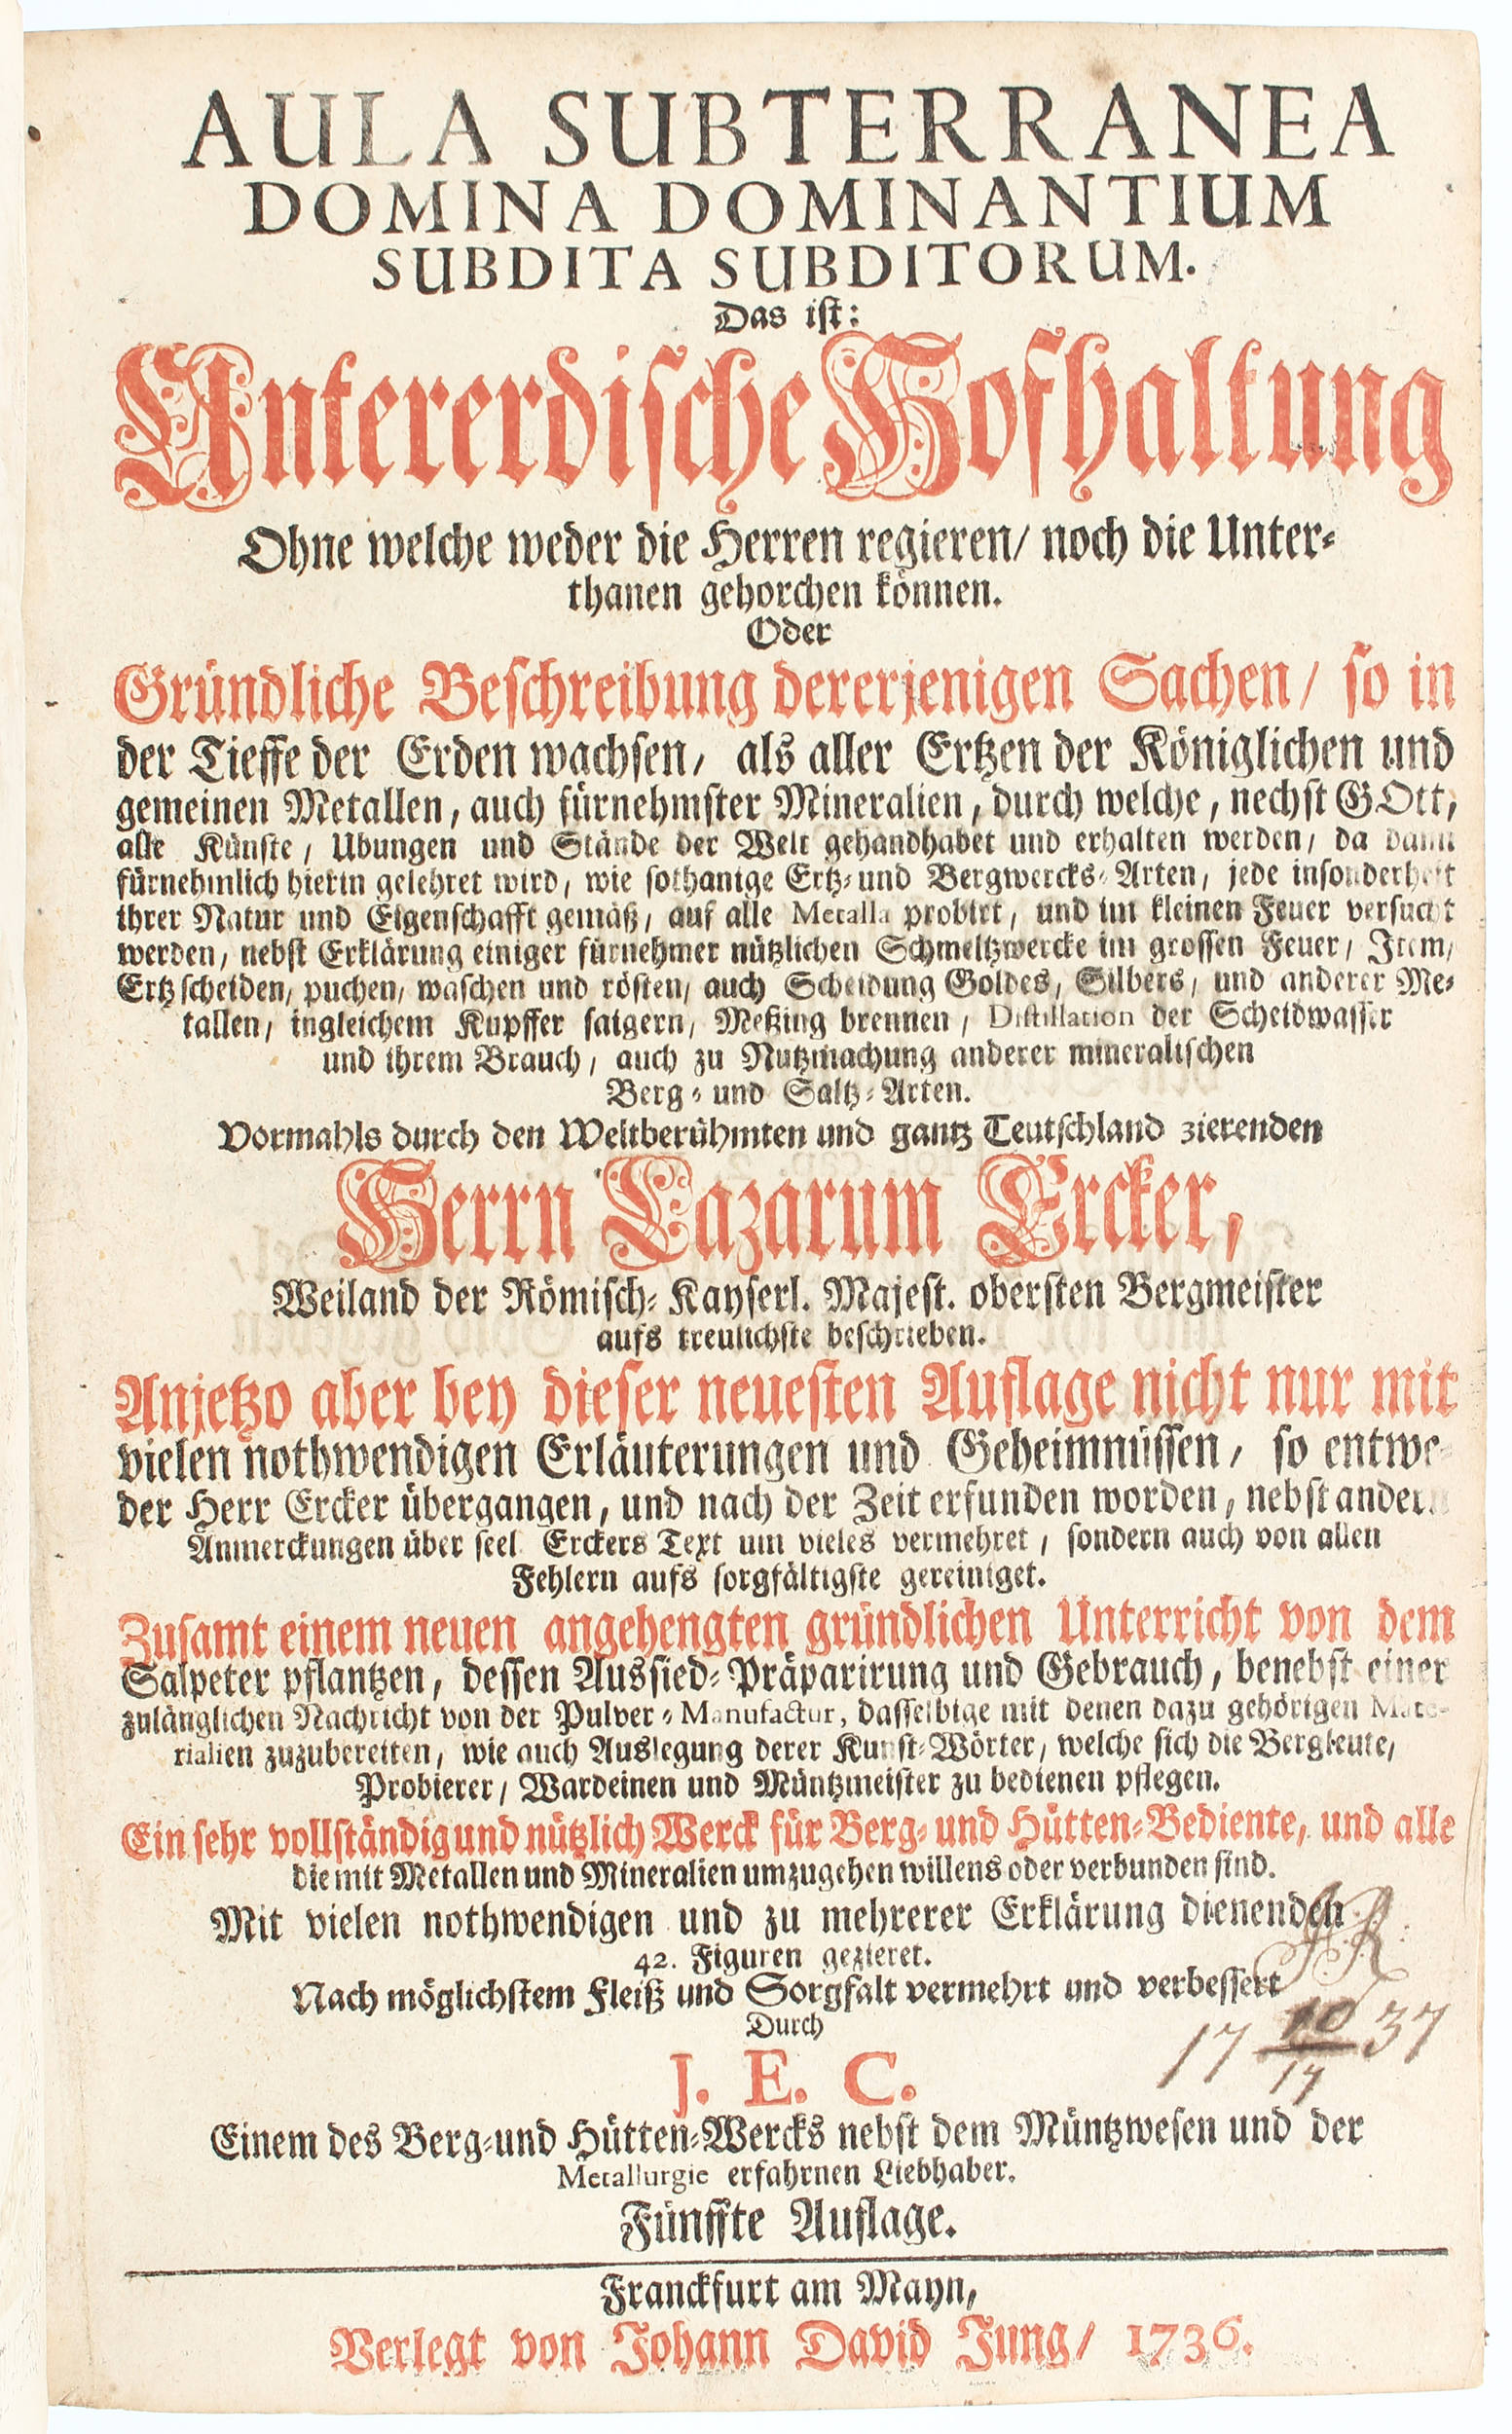 AULA SUBTERRANEA
DOMINA DOMINANTIUM
SUBDITA SUBDITORUM.
Das ist:
Untererdische Hofhaltung
Ohne welche weder die Herren regieren/ noch die Unter-
thanen gehorchen können.
Oder
Gründliche Beschreibung dererjenigen Sachen/ so in
der Tieffe der Erden wachsen/ als aller Ertzen der Königlichen und
gemeinen Metallen, auch fürnehmster Mineralien, durch welche, nechst GOtt,
alle Künste/ Ubungen und Stände der Welt gehandhabet und erhalten werden/ da dann
fürnehmlich hierin gelehret wird, wie sothanige Ertz- und Bergwercks-Arten, jede insonderheit
ihrer Natur und Eigenschafft gemäß/ auf alle Metalla probirt, und im kleinen Feuer versucht
werden, nebst Erklärung einiger fürnehmer nützlichen Schmeltzwercke im grossen Feuer/ Item/
Ertz scheiden/ puchen/ waschen und rösten/ auch Scheidung Goldes, Silbers, und anderer Me-
tallen/ ingleichem Kupffer saigern, Meßing brennen, Distillation der Scheidwasser
und ihrem Brauch, auch zu Nutzmachung anderer mineralischen
Berg- und Saltz-Arten.
Vormahls durch den Weltberühmten und gantz Teutschland zierenden
Herrn Lazarum Ercker,
Weiland der Römisch-Kayserl. Majest. obersten Bergmeister
aufs treulichste beschrieben.
Anjetzo aber bey dieser neuesten Auflage nicht nur mit
vielen nothwendigen Erläuterungen und Geheimnüssen/ so entwe-
der Herr Ercker übergangen, und nach der Zeit erfunden worden, nebst andern
Anmerckungen über seel. Erckers Text um vieles vermehret, sondern auch von allen
Fehlern aufs sorgfältigste gereiniget.
Zusamt einem neuen angehengten gründlichen Unterricht von dem
Salpeter pflantzen, dessen Aussied-Präparirung und Gebrauch, benebst einer
zulänglichen Nachricht von der Pulver-Manufactur, dasselbige mit denen dazu gehörigen Mate-
rialien zuzubereiten, wie auch Auslegung derer Kunst-Wörter, welche sich die Bergleute,
Probierer/ Wardeinen und Müntzmeister zu bedienen pflegen.
Ein sehr vollständig und nützlich Werck für Berg- und Hütten-Bediente, und alle
die mit Metallen und Mineralien umzugehen willens oder verbunden sind.
Mit vielen nothwendigen und zu mehrerer Erklärung dienenden
42. Figuren gezieret.
Nach möglichstem Fleiß und Sorgfalt vermehrt und verbessert
Durch
J. E. C.
17 10/17 37
Einem des Berg-und Hütten-Wercks nebst dem Müntzwesen und der
Metallurgie erfahrnen Liebhaber.
Fünffte Auflage.
Franckfurt am Mayn,
Verlegt von Johann David Jung/ 1736.